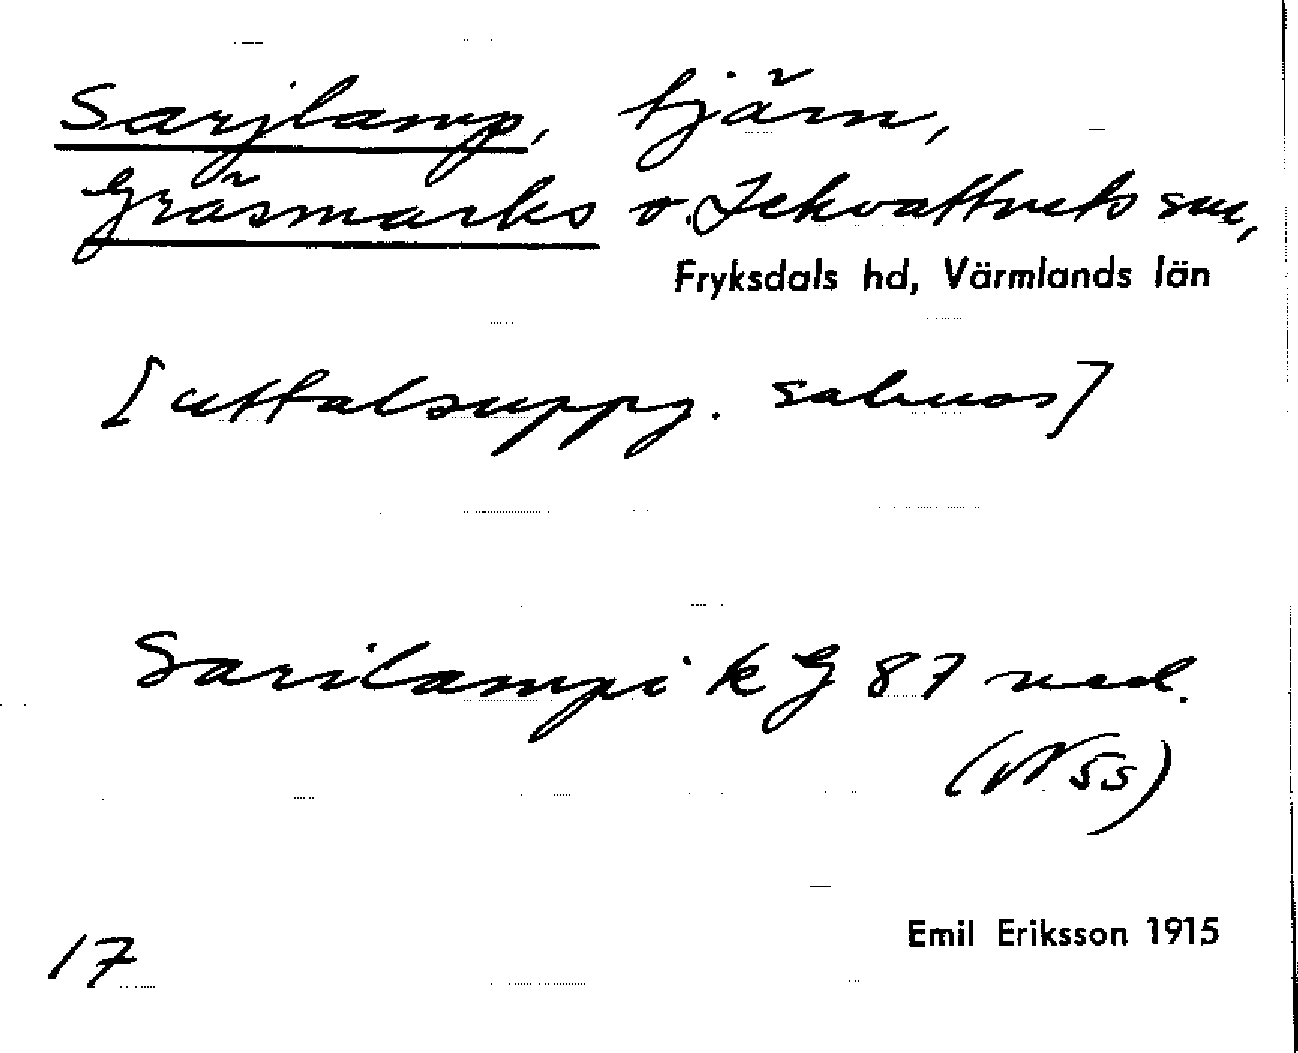 Sarjlamp, tjärn,
Gräsmarks o. Lekvattnets snr,
Fryksdals hd, Värmlands län
[uttalsuppg. saknas]
Sarilampi k G 87 ned.
(NSs)
Emil Eriksson 1915
17